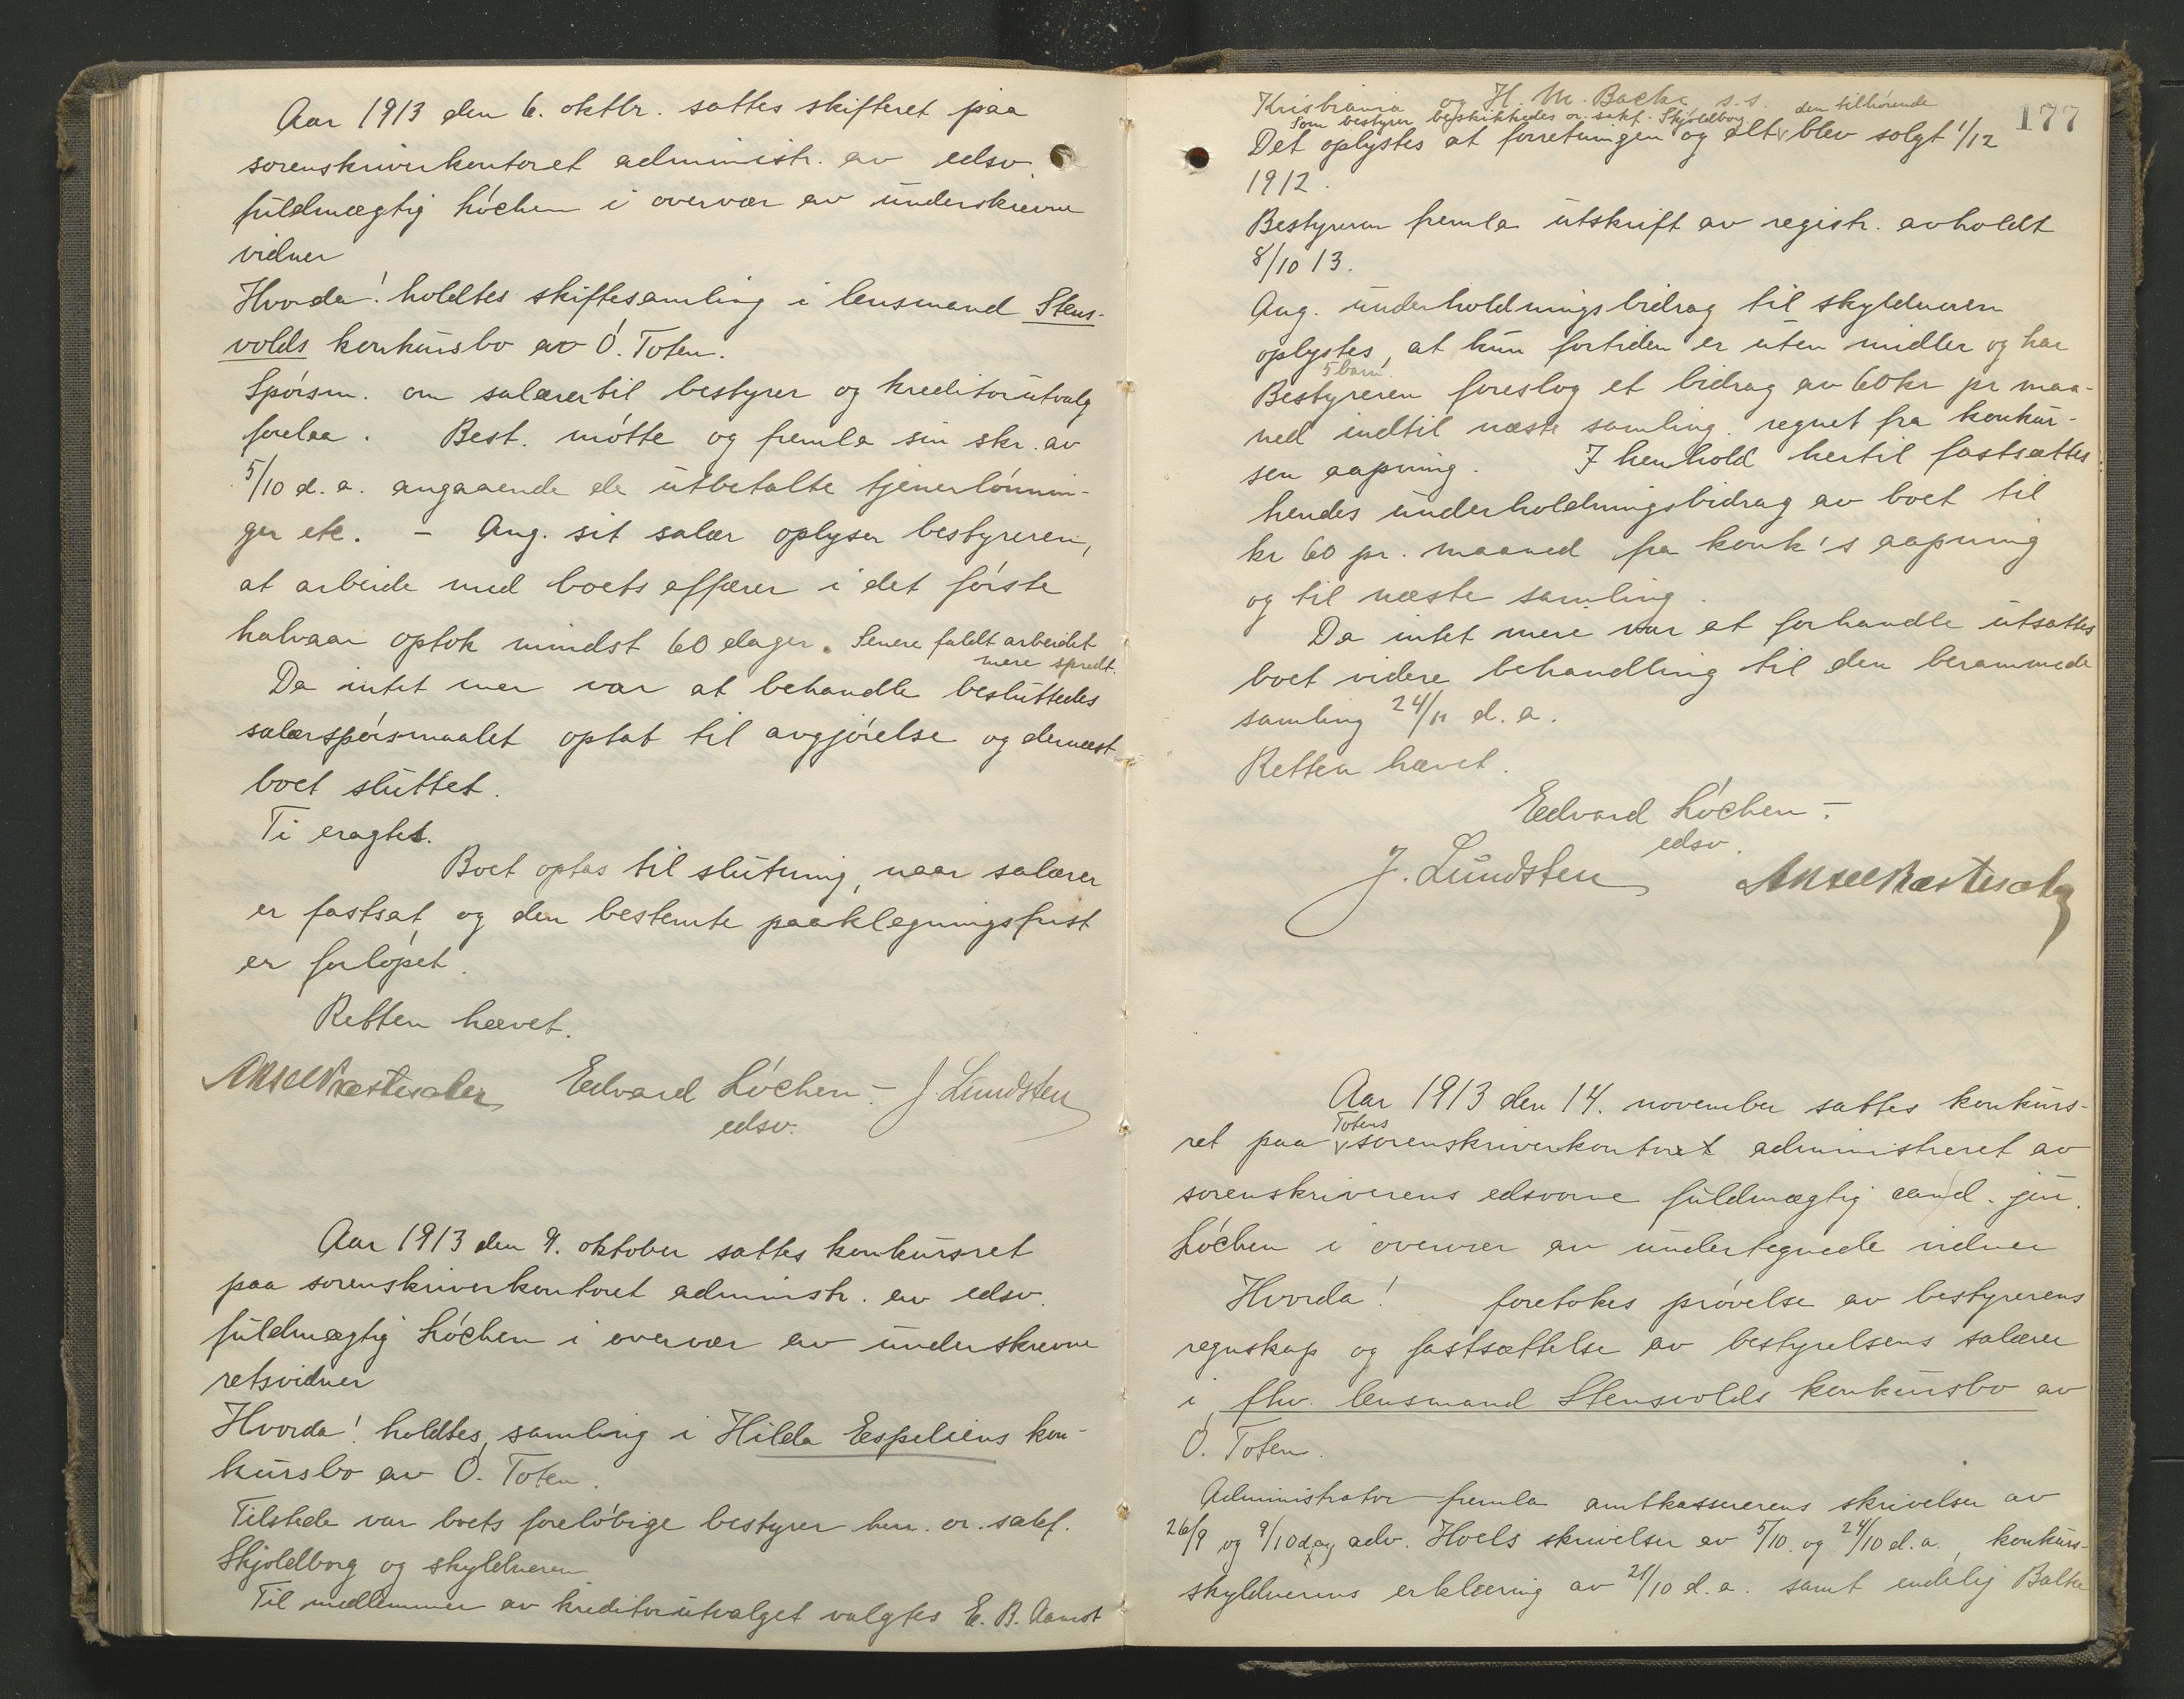 Aar 1913 den 6. oktbr. sattes skifteret paa
sorenskriverkontoret administr. av edsv.
fuldmægtig Løchen i overvær av underskrevne
vidner
Hvorda! holdtes skiftesamling i lensmand Stens-
volds konkursbo av Ø. Toten.
Spørsm. om salærer til bestyrer og kreditorutvalg
forelaa. Best. møtte og fremla sin skr. av
5/10 d. a. angaaende de utbetalte tjenerlønnin-
ger etc. - Ang. sit salær oplyser bestyreren,
at arbeide med boets affærer i det første
halvaar optok mindst 60 dager. Senere faldt arbeidet
mere spredt.
Da intet mer var at behandle besluttedes
salærspørsmaalet optat til avgjørelse og dernæst
boet sluttet.
Ti eragtes.
Boet optas til slutning, naar salærer
er fastsat, og den bestemte paaklegningsfrist
er forløpet.
Retten hævet.
Aksel Næstesæter Edvard Løchen - J. Lundsten
edsv.
Aar 1913 den 9. oktober sattes konkursret
paa sorenskriverkontoret administr. av edsv.
fuldmægtig Løchen i overvær av underskrevne
retsvidner
Hvorda! holdtes samling i Hilda Espeliens kon-
kursbo av Ø. Toten.
Tilstede var boets foreløbige bestyrer herr. or. sakf.
Skjoldborg og skyldneren
Til medlemmer av kreditorutvalget valgtes E. B. Aamot
177
Kristiania og H. M. Backe s.s.
Som bestyrer beskikkedes or. sakf. Skjoldborg. den tilhørende
Det oplystes at forretningen og alt blev solgt 1/12
1912.
Bestyreren fremla utskrift av registr. avholdt
8/10 13.
Ang. underholdningsbidrag til skyldneren
oplystes, at hun fortiden er uten midler og har
5 barn.
Bestyreren foreslog et bidrag av 60 kr pr maa-
ned indtil næste samling. regnet fra konkur-
sen aapning. I henhold hertil fastsættes:
hendes underholdningsbidrag av boet til
kr 60 pr. maaned fra konk's aapning
og til næste samling.
Da intet mere var at forhandle utsattes
boet videre behandling til den berammede
samling 24/11 d. a.
Retten hævet.
Edvard Løchen -
edsv.
J. Lundsten Aksel Næstesæter
Aar 1913 den 14. november sattes konkurs-
Totens
ret paa sorenskriverkontoret administreret av
sorenskriverens edsvorne fuldmægtig cand. jur.
Løchen i overvær av undertegnede vidner
Hvorda! foretokes prøvelse av bestyrerens
regnskap og fastsættelse av bestyrelsens salærer
i fhv. lensmand Stensvolds konkursbo av
Ø. Toten.
Administrator fremla amtkassererens skrivelser av
26/9 og 9/10 d. a., adv. Hoels skrivelser av 5/10 og 24/10 d. a., konkurs-
skyldnerens erklæring av 21/10 d. a. samt endelig Balke